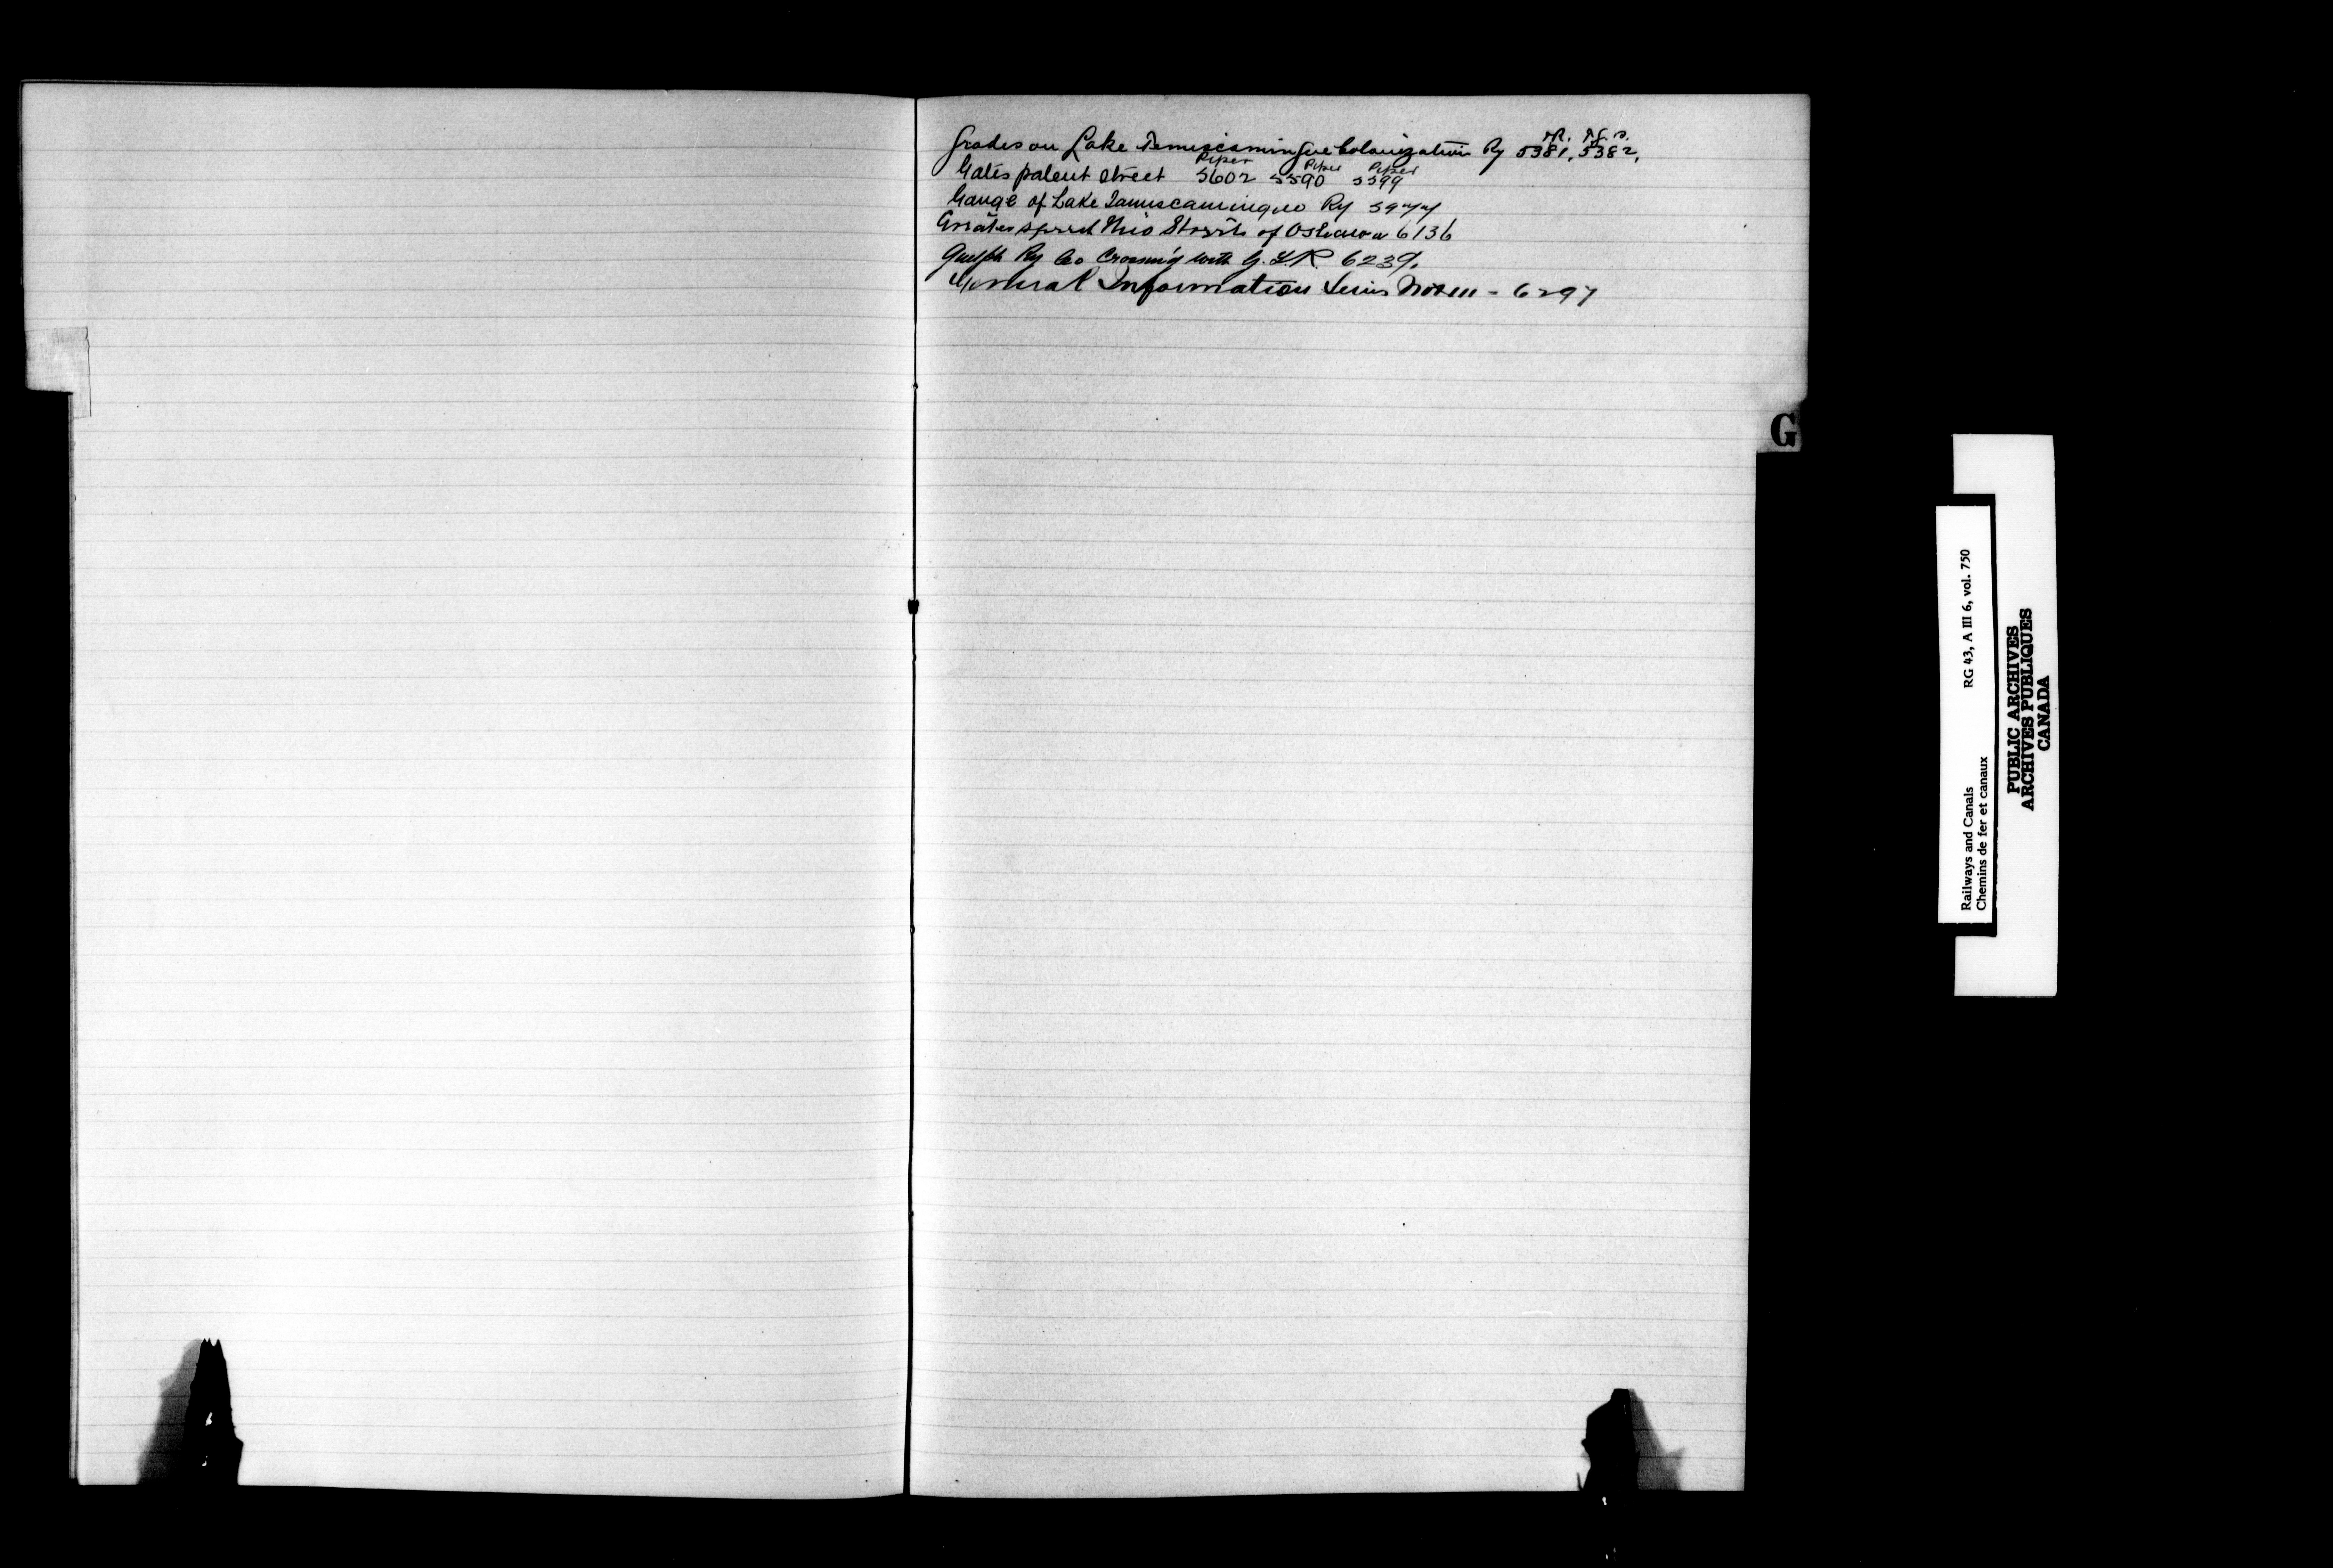 Grades on Lake Temiscamingue Colonization Ry 5381, 5382,
Gates patent street 5602 5590 5599
Piper Piper Piper
Gauge of Lake Tamiscamingue Ry
Greater speed thro Streets of Oshawa 6136
Guelph Ry Co Crossing with G.T.R. 6239.
General Information Series - 6297
G
Railways and Canals RG 43, A III 6, vol. 750
Chemins de fer et canaux
PUBLIC ARCHIVES
ARCHIVES PUBLIQUES
CANADA